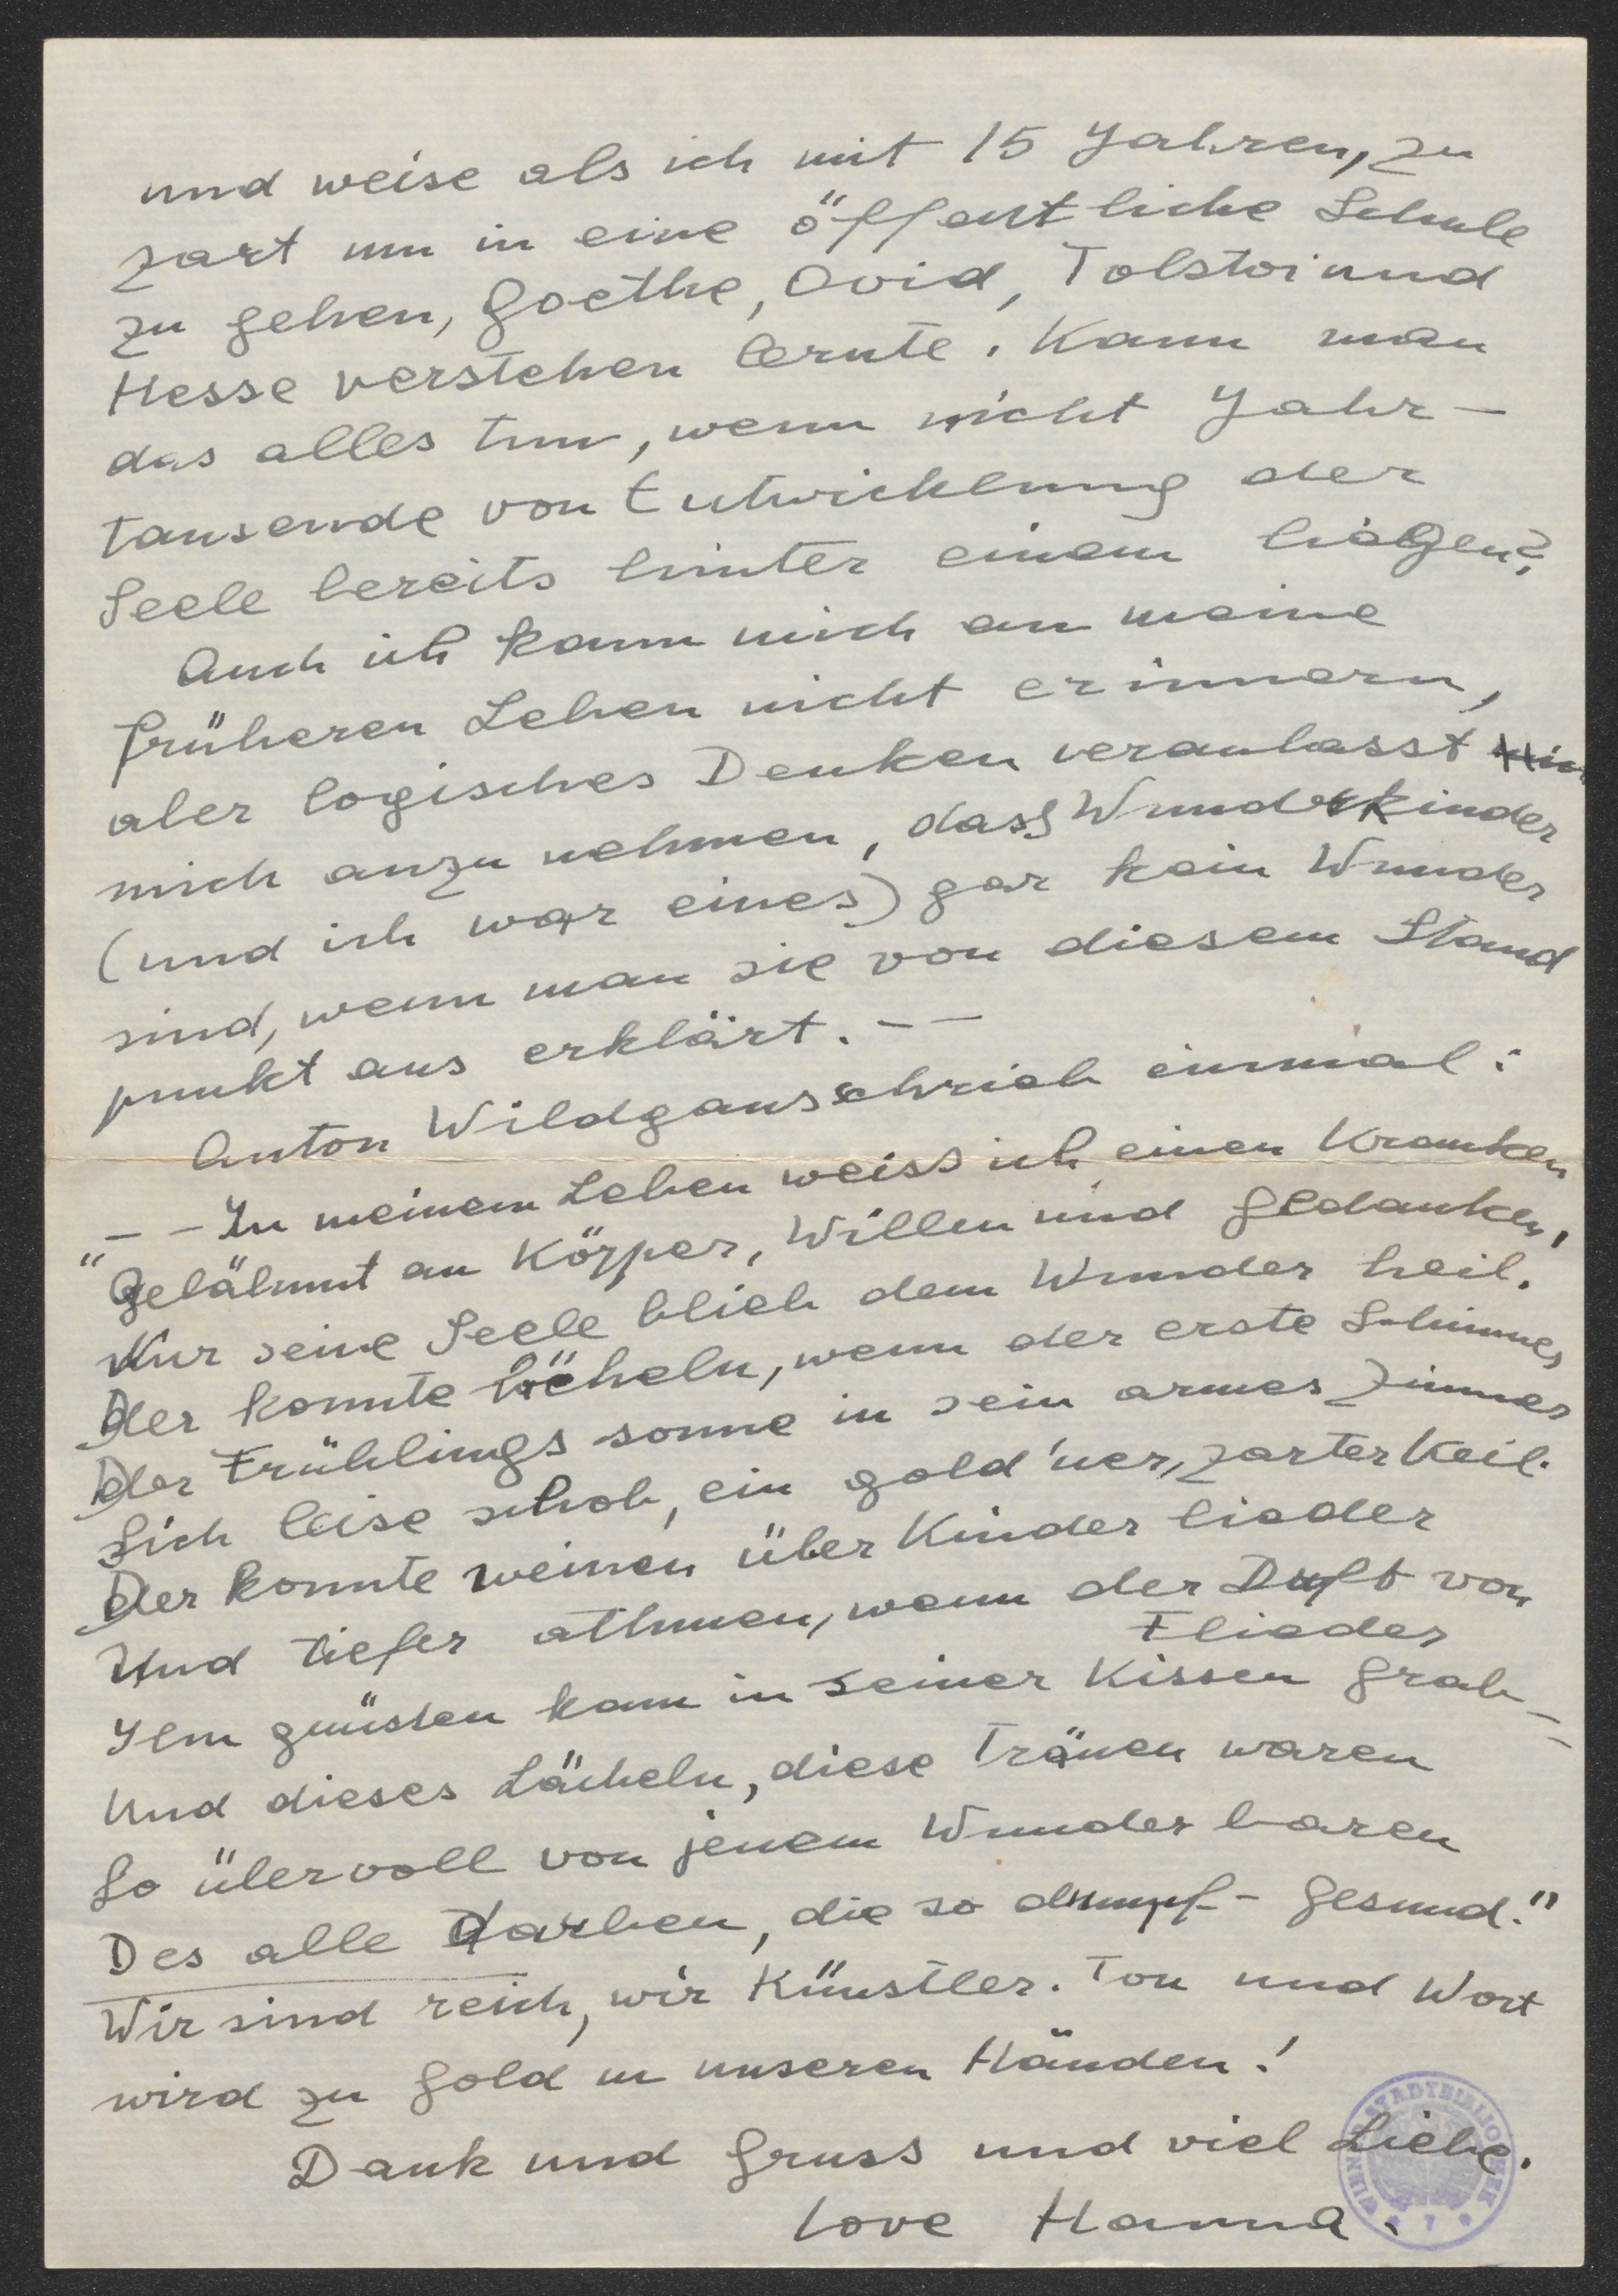 und weise als ich mit 15 Jahren, zu
zart um in eine öffentliche Schule
zu gehen, Goethe, Ovid, Tolstoi und
Hesse verstehen lernte. Kann man
das alles tun, wenn nicht Jahr-
tausende von Entwicklung der
Seele bereits hinter einem liegen?
Auch ich kann mich an meine
früheren Leben nicht erinnern,
aber logisches Denken veranlasst
mich anzunehmen, dass Wunderkinder
(und ich war eines) gar kein Wunder
sind, wenn man sie von diesem Stand
punkt aus erklärt. – –
Anton Wildgans schrieb einmal:
"– – In meinem Leben weiss ich einen Kranken,
Gelähmt an Körper, Willen und Gedanken,
Nur seine Seele blieb dem Wunder heil.
Der konnte lächeln, wenn der erste Schimmer
Der Frühlingssonne in sein armes Zimmer
Sich leise schob, ein gold'ner, zarter Keil.
Der konnte weinen über Kinderlieder
Und tiefer athmen, wenn der Duft von
Flieder
Ihm grüssen kam in seiner Kissen Grab – –
Und dieses Lächeln, diese Tränen waren
So übervoll von jenem Wunderbaren
Des alle darben, die so dumpf - gesund."
Wir sind reich, wir Künstler. Ton und Wort
wird zu Gold in unseren Händen!
Dank und Gruss und viel Liebe.
Love Hanna.
WIENER STADTBIBLIOTHEK